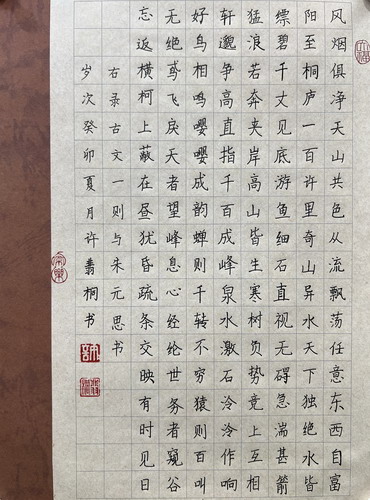 风烟俱净天山共色从流飘荡任意东西自富
阳至桐庐一百许里奇山异水天下独绝水皆
缥碧千丈见底游鱼细石直视无碍急湍甚箭
猛浪若奔夹岸高山皆生寒树负势竞上互相
轩邈争高直指千百成峰泉水激石泠泠作响
好鸟相鸣嘤嘤成韵蝉则千转不穷猿则百叫
无绝鸢飞戾天者望峰息心经纶世务者窥谷
忘返横柯上蔽在昼犹昏疏条交映有时见日
右录古文一则与朱元思书
岁次癸卯夏月许桐书